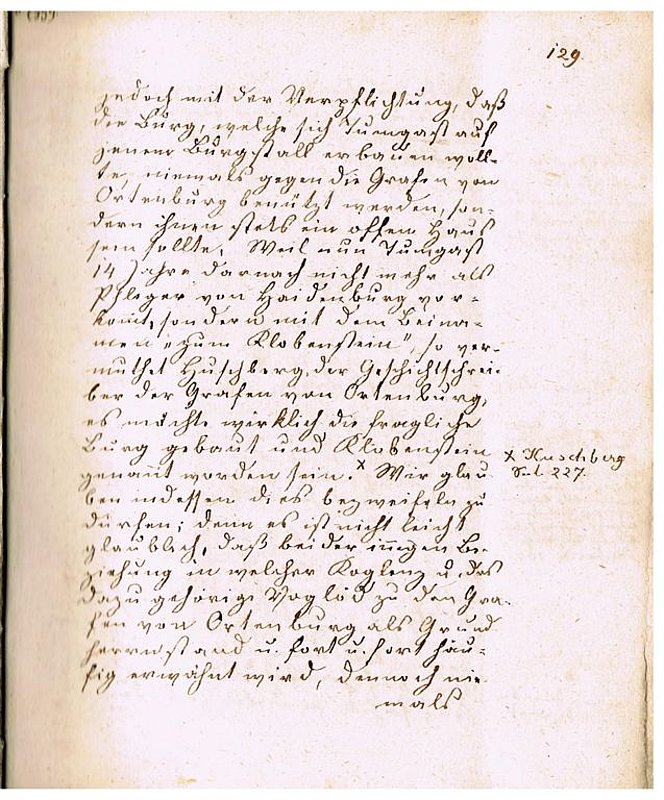 129.
jedoch mit der Verpflichtung, daß
die Burg, welche sich Tumgast auf
jenem Burgstall erbauen woll-
te, niemals gegen die Grafen von
Ortenburg benützt werden, son-
dern ihnen stets ein offen Haus
sein sollte. Weil nun Tumgast
14 Jahre darnach nicht mehr als
Pfleger von Haidenburg vor-
komt, sondern mit dem Beina-
men „zum Klobenstein", so ver-
muthet Huschberg, der Geschichtschrei-
ber der Grafen von Ortenburg,
es möchte wirklich die fragliche
Burg gebaut und Klobenstein
genannt worden sein. x Wir glau-
ben indessen dies bezweifeln zu
dürfen; denn es ist nicht leicht
glaublich, daß bei der innigen Be-
ziehung in welcher Koglenz u. das
dazu gehörige Voglöd zu den Gra-
fen von Ortenburg als Grund
herrn stand u. fort u. fort häu-
fig erwähnt wird, dennoch nie-
mals
x Huschberg
Seit. 227.